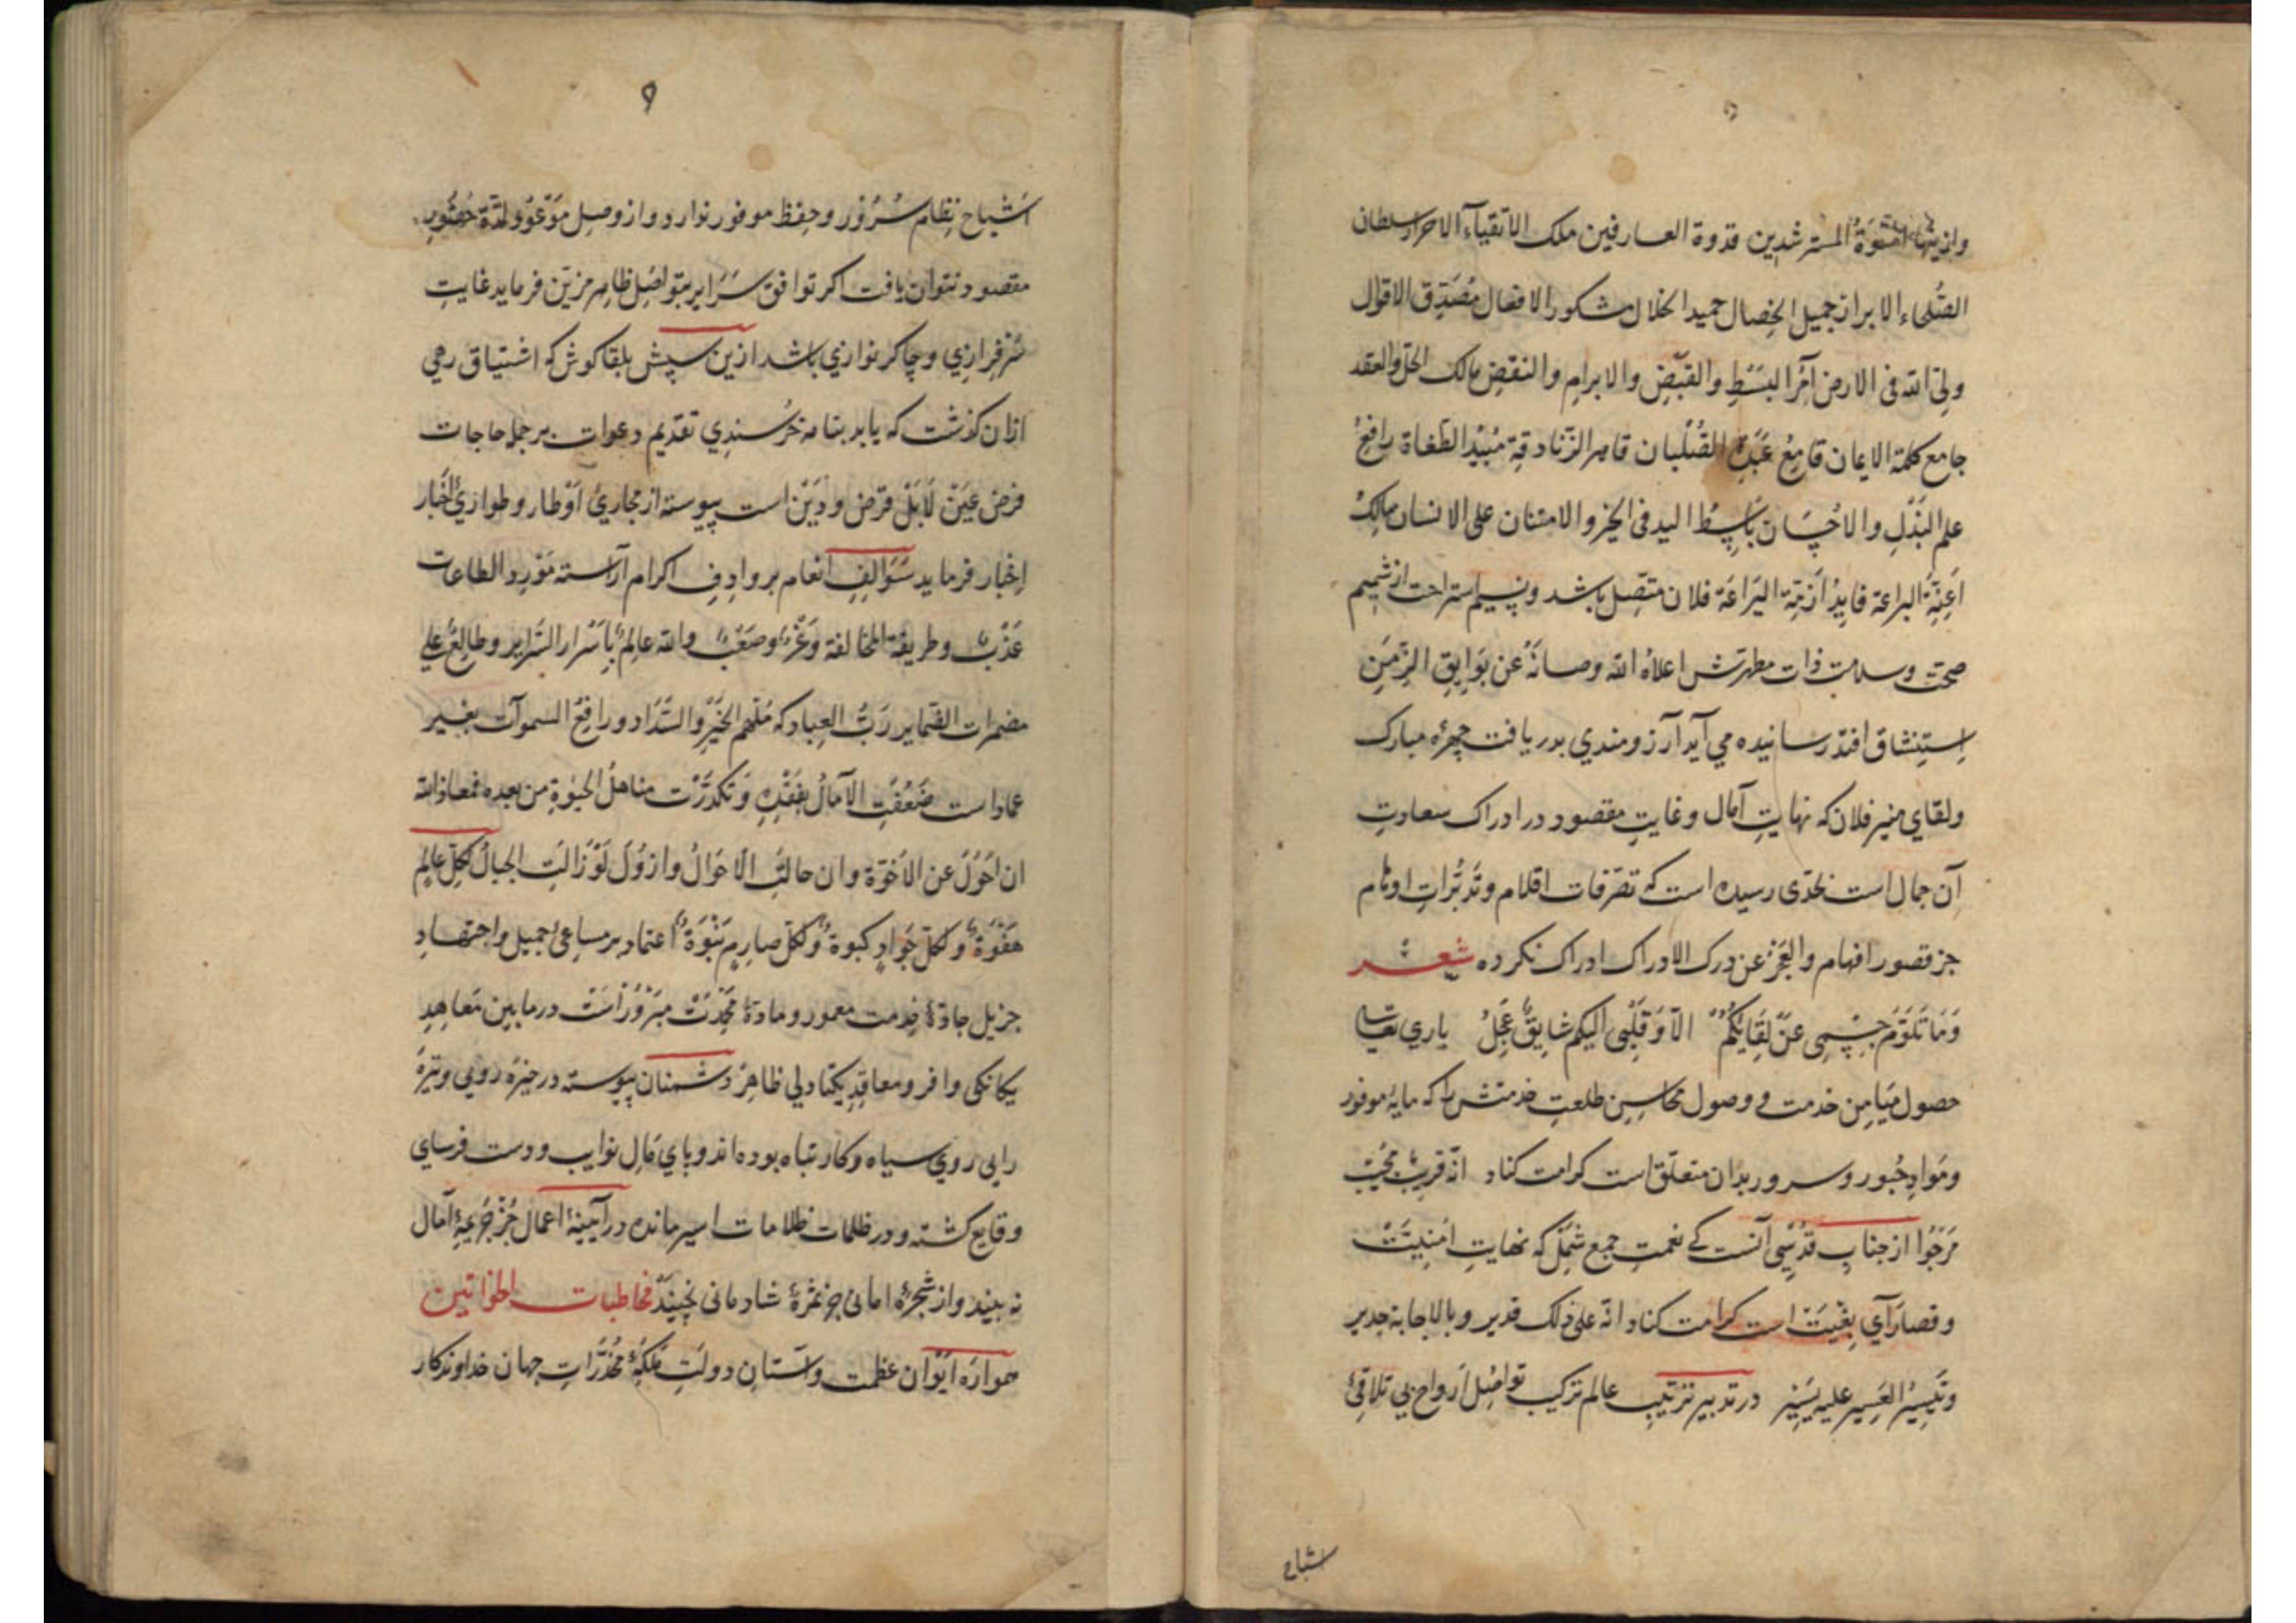 اسوة المسترشدین قدوة العارفین ملک الاتقیاء الاحرار سلطان
الصّلحاء الابرار جمیل الخصال حمید الخلال مشکور الافعال مصدّق الاقوال
ولیّ الله فی الارض آمر البسط والقبض والابرام والنقض مالک الحلّ والعقد
جامع کلمة الایمان قامع عبدة الصّلبان قاهر الزّنادقة مبید الطغاة رافع
علم البذل والاحسان باسط الید فی الخیر والامتنان علی الانسان مالک
اعنّة البراعة قاید ازمّة الیراعة فلان متّصل باشد ونسیم استراحت از شمیم
صحّت وسلامت ذات مطهرتش اعلاه الله وصانه عن بوایق الزّمن
استنشاق افتد رسانیده می آید آرزومندی بدریافت چهرۀ مبارک
ولقای منیر فلان که نهایت آمال وغایت مقصود در ادراک سعادت
آن جمال است بحدّی رسیده است که تصرّفات اقلام وتدبّرات اوهام
جز قصور افهام والعجز عن درک الادراک ادراک نکرده شعر
وما تلوّم جسمی عن لقایکم الّا وقلبی الیکم شایق عجل باری تعالی
حصول میامن خدمت و وصول محاسن طلعت خدمتش را که مایۀ موفور
ومواد حبور وسرور بدان متعلّق است کرامت کناد انّه قریب مجیب
مرجوّ از جناب قدسی آنست کی نعمت جمع شمل که نهایت امنیت
وقصارای بغیت است کرامت کناد انّه علی ذلک قدیر وبالاجابة جدیر
وتیسیر العسیر علیه یسیر در تدبیر ترتیب عالم ترکیب تواصل ارواح بی تلاقی
اشباح
۹
اشباح نظام سرور وحفظ موفور نوارد و از وصل موعود لذّة حضور
مقصود نتوان یافت اکر توافق سرایر بتواصل ظاهر مزیّن فرماید غایت
سرفرازی وچاکر نوازی باشد ازین سپس بلقا کوش که اشتیاق رهی
ازان کذشت که یابد بنامه خرسندی تقدیم دعوات بر جمل حاجات
فرض عین لا بل قرض ودین است پیوسته از مجاری اوطار وطوارئ اخبار
اخبار فرماید سوالف انعام بروادف اکرام آراسته مورد الطاعات
عذب وطریقة المخالفة وعر وصعب والله عالم باسرار السّرایر وطالع علی
مضمرات الضّمایر ربّ العباد که ملهم الخیر والسّداد ورافع السموآت بغیر
عماد است ضعفت الآمال بفقده وتکدّرت مناهل الحیوة من بعده فمعاذ الله
ان احول عن الاخوّة وان حالت الاحوال وازول لو زالت الجبال لکلّ عالم
هفوة ولکلّ جواد کبوة ولکلّ صارم نبوة اعتماد بر مساعی جمیل واجتهاد
جزیل جادّۀ خدمت معمور ومادّۀ محمدت مبرور است در ما بین معاهد
یکانکی وافر ومعاقد یکتادلی ظاهر دشمنان پیوسته در خیره رویی وتیره
رایی روی سیاه وکار تباه بوده اند وپای مال نوایب ودست فرسای
وقایع کشته ودر ظلمات ظلامات اسیر مانده در آیینۀ اعمال جز جریمۀ آمال
نه بیند واز شجرۀ امانی جز ثمرۀ شادمانی نچیند مخاطبات الخواتین
همواره ایوان عظمت وآستان دولت ملکۀ مخدّرات جهان خداوندکار